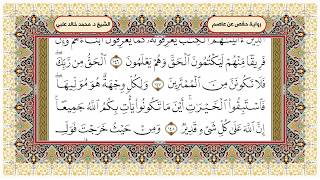 رواية حفص عن عاصم
الشيخ د. محمد خالد علبي
ٱلْكِتَٰبَ يَعْرِفُونَهُۥ كَمَا يَعْرِفُونَ أَبْنَآءَهُمْ وَإِنَّ
فَرِيقًا مِّنْهُمْ لَيَكْتُمُونَ ٱلْحَقَّ وَهُمْ يَعْلَمُونَ ١٤٦ ٱلْحَقُّ مِن رَّبِّكَ
فَلَا تَكُونَنَّ مِنَ ٱلْمُمْتَرِينَ ١٤٧ وَلِكُلٍّ وِجْهَةٌ هُوَ مُوَلِّيهَا
فَٱسْتَبِقُوا۟ ٱلْخَيْرَٰتِ أَيْنَ مَا تَكُونُوا۟ يَأْتِ بِكُمُ ٱللَّهُ جَمِيعًا
إِنَّ ٱللَّهَ عَلَىٰ كُلِّ شَىْءٍ قَدِيرٌ ١٤٨ وَمِنْ حَيْثُ خَرَجْتَ فَوَلِّ